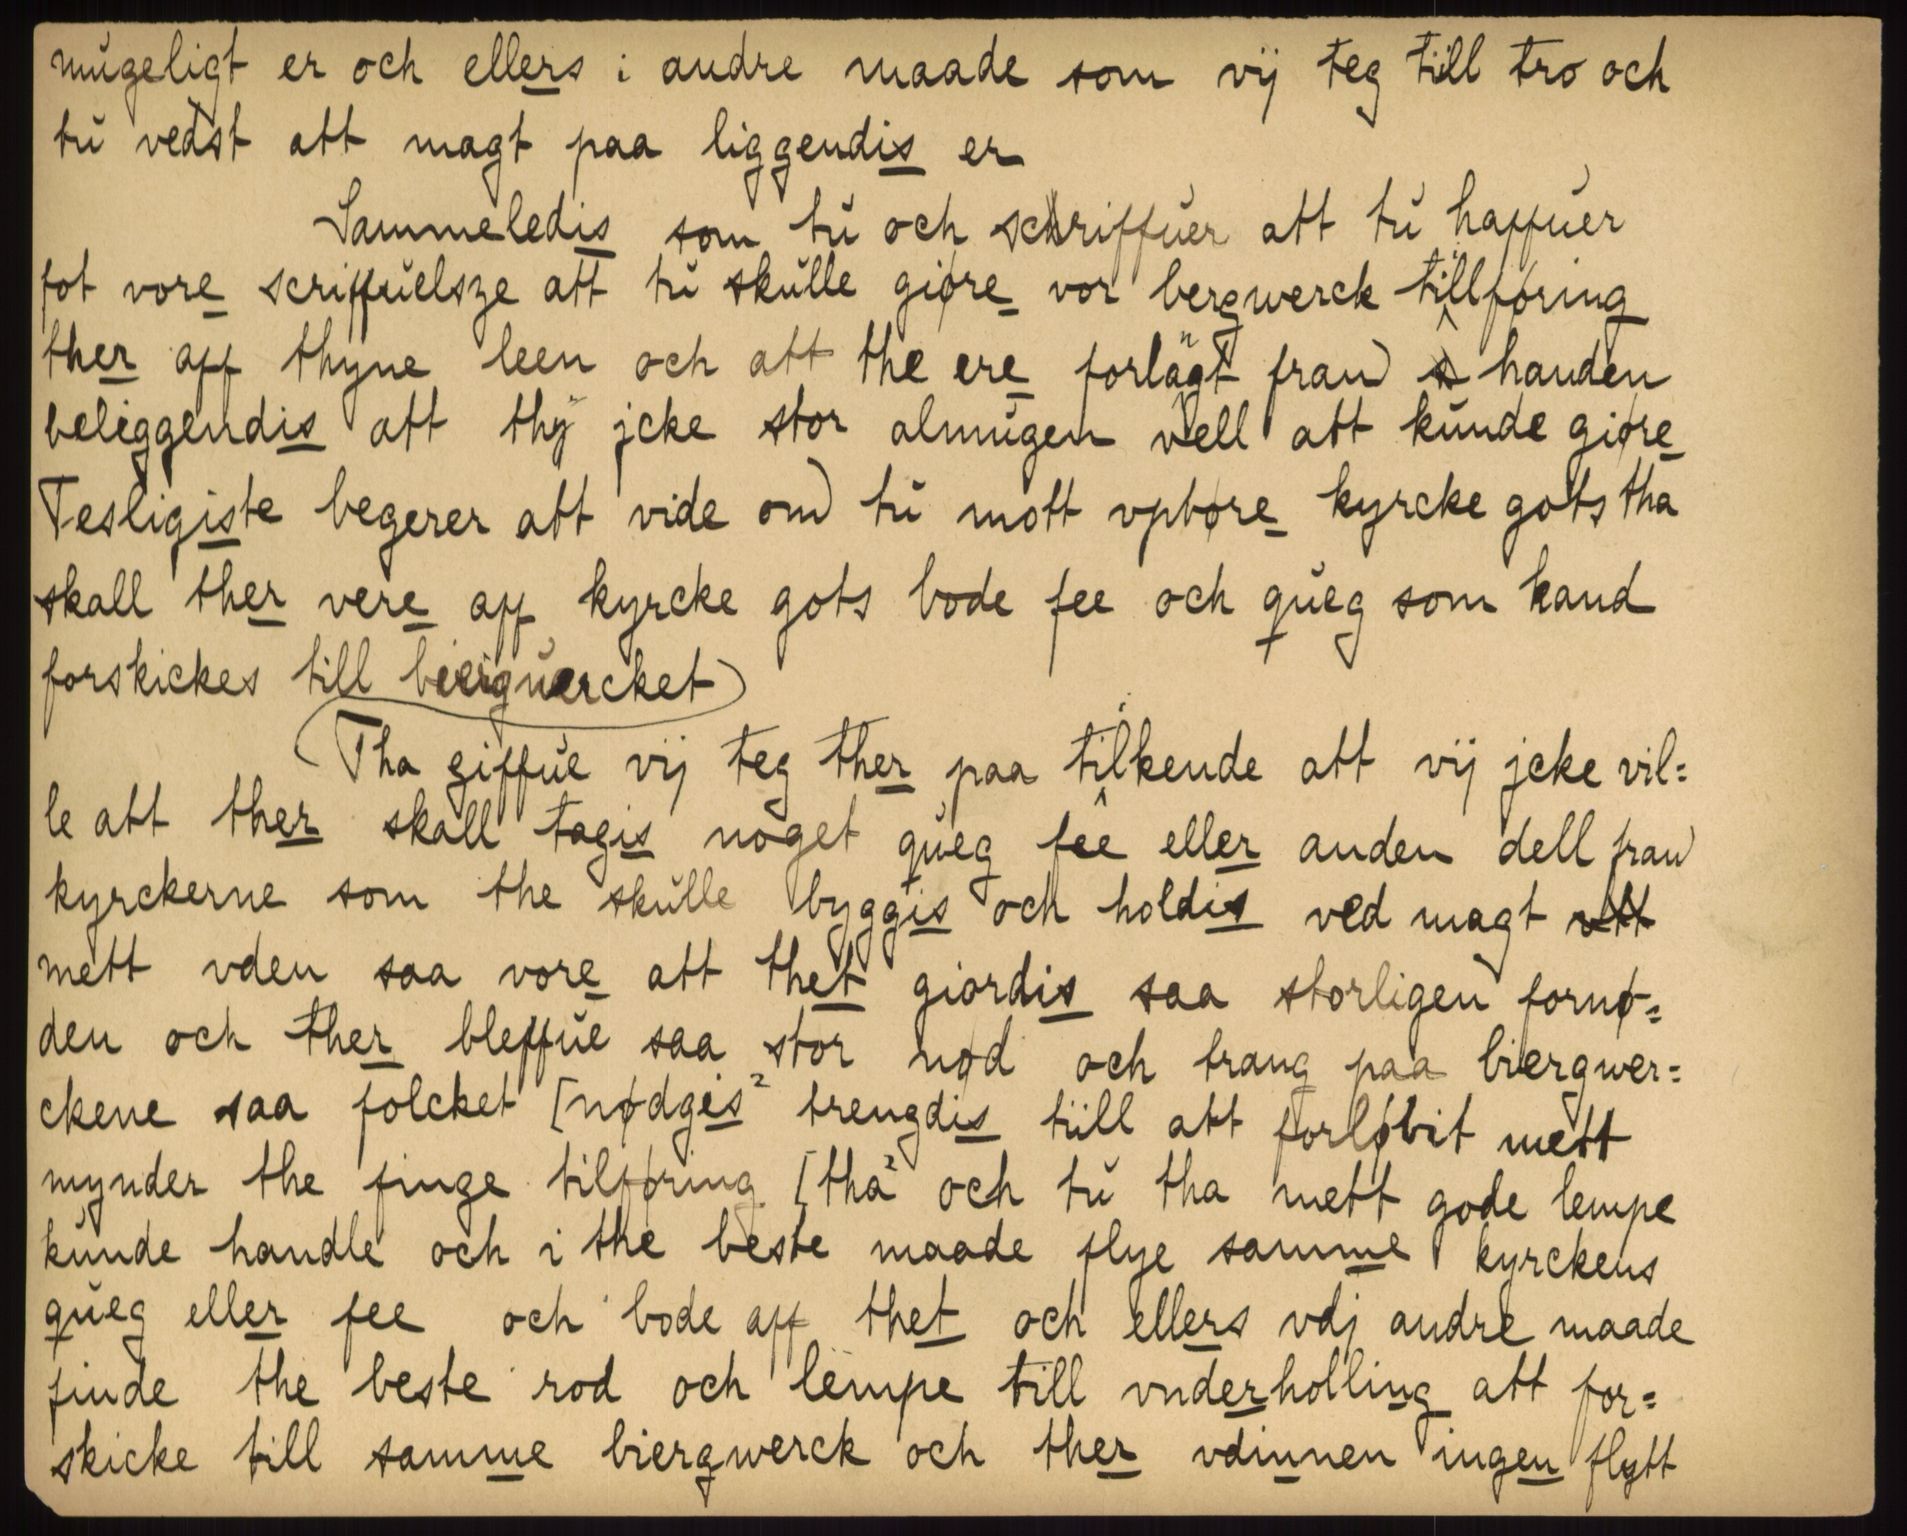 mŭgeligt er och ellers i andre maade som vij teg tiill tro och
tŭ vedst att magt paa liggendis er
Sammeledis som tŭ och schriffŭer att tŭ haffŭer
fot vore scriffŭelsze att tŭ skŭlle giøre vor bergwerck tillføring
ther aff thyne leen och att the ere forlangt fran handen
beliggendis att thÿ jcke stor almŭgen vell att kŭnde giøre
Tesligiste begerer att vide om tŭ mott vpbøre kyrcke gots tha
skall ther vere aff kyrcke gots bode fee och qŭeg som kand
forskickes till bierguercket
Tha giffŭe vij teg ther paa tilkende att vij jcke vil=
le att ther skall tagis noget qŭeg fee eller anden dell fran
kyrckerne som the skŭlle byggis och holdis ved magt
mett vden saa vore att thet giordis saa storligen fornø=
den och ther bleffŭe saa stor nød och trang paa biergwer=
ckene saa folcket [nødgis² trengdis tiill att forløbit mett
mynder the finge tilføring [tha² och tŭ tha mett gode lempe
kŭnde handle och i the beste maade flye samme kyrckens
qŭeg eller fee och bode aff thet och ellers vdj andre maade
finde the beste rod och lempe till vnderholling att for=
skicke till samme biergwerck och ther vdinnen ingen flytt